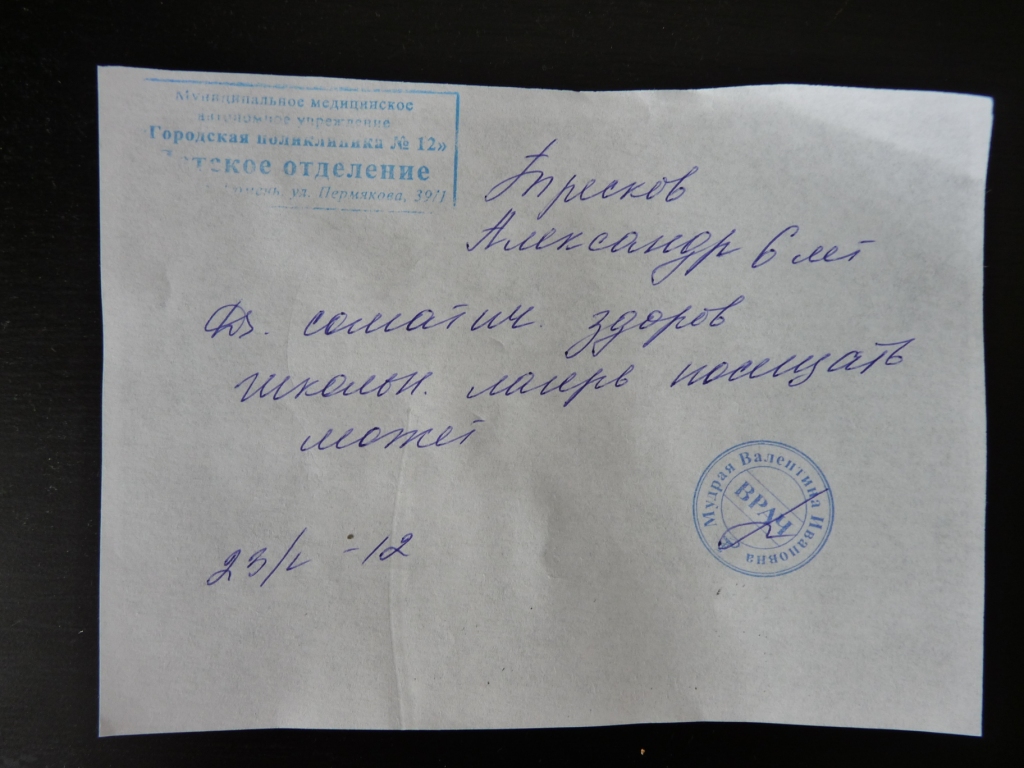 Муниципальное медицинское
автономное учреждение
Городская поликлиника № 12»
Детское отделение
Тюмень, ул. Пермякова, 39/1
Тресков
Александр 6 лет
Ds. соматич. здоров
школьн. лагерь посещать
может
-12
Мудрая Валентина Ивановна
ВРАЧ